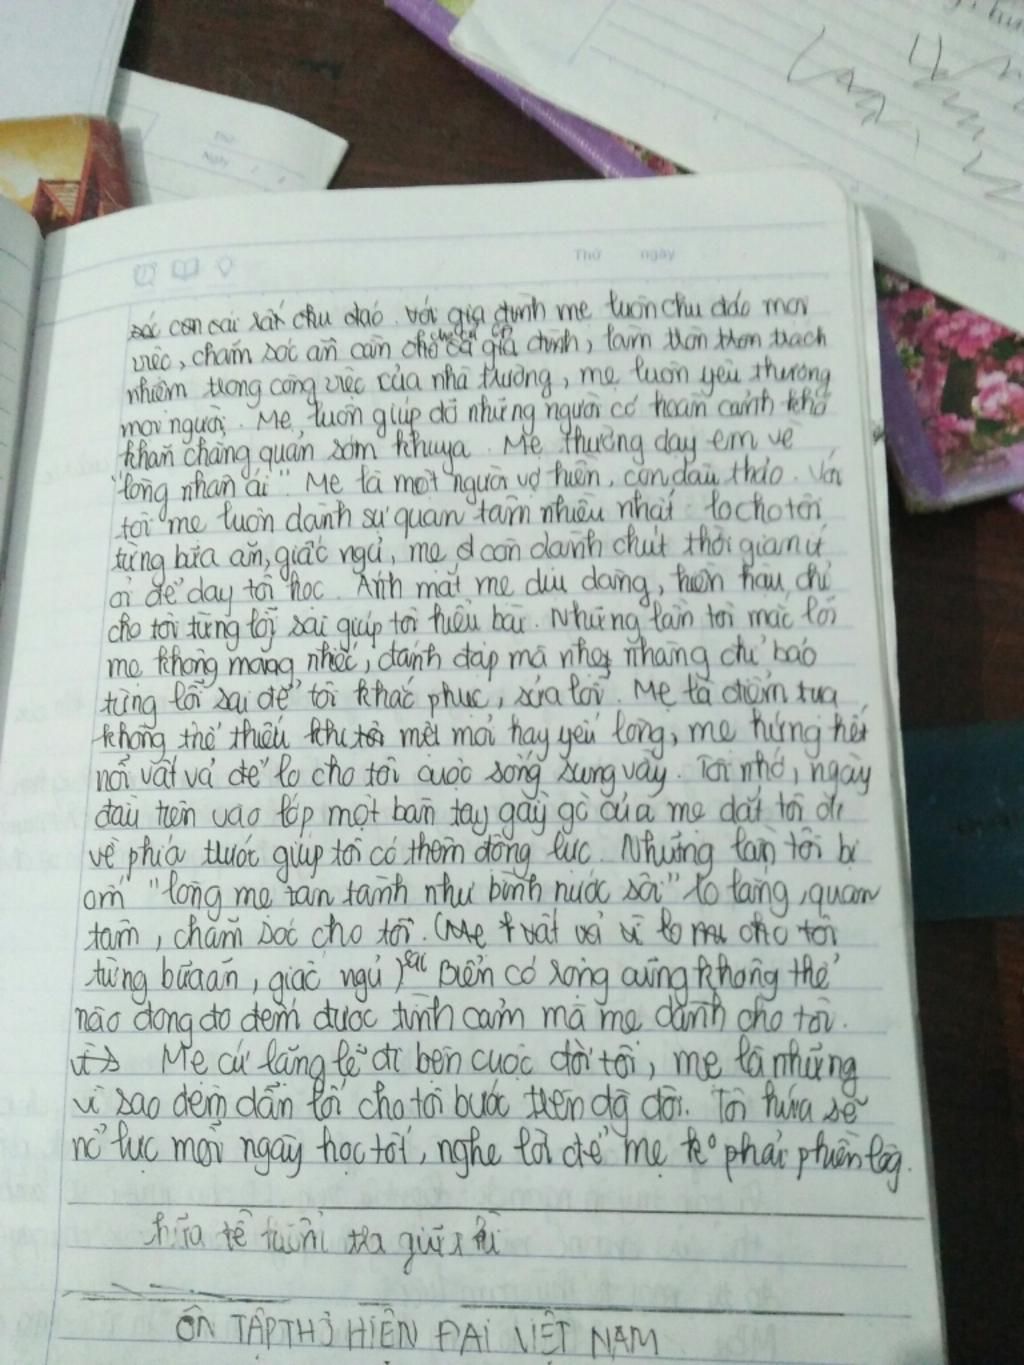 Thứ ngày
sóc con cái rất chu đáo. Với gia đình mẹ luôn chu đáo mọi
việc, chăm sóc ăn cần cho cả gia đình, làm tròn tròn trách
nhiệm trong công việc của nhà trường, mẹ luôn yêu thương
mọi người. Mẹ luôn giúp đỡ những người có hoàn cảnh khó
khăn chẳng quản sớm khuya. Mẹ thường dạy em về
"lòng nhân ái". Mẹ là một người vợ hiền, con dâu thảo. Với
tôi mẹ luôn dành sự quan tâm nhiều nhất lo cho tôi
từng bữa ăn, giấc ngủ, mẹ còn dành chút thời gian ít
ỏi để dạy tôi học. Ánh mắt mẹ dịu dàng, hiền hậu, chỉ
cho tôi từng lỗi sai giúp tôi hiểu bài. Những lần tôi mắc lỗi
mẹ không mắng nhiếc, đánh đập mà nhẹ nhàng chỉ bảo
từng lỗi sai để tôi khắc phục, sửa lỗi. Mẹ là điểm tựa
không thể thiếu khi tôi mệt mỏi hay yếu lòng, mẹ hứng hết
nỗi vất vả để lo cho tôi cuộc sống sung vầy. Tôi nhớ, ngày
đầu tiên vào lớp một bàn tay gầy gò của mẹ dắt tôi đi
về phía trước giúp tôi có thêm động lực. Những lần tôi bị
ốm "lòng mẹ tan tành như bình nước sôi" lo lắng, quan
tâm, chăm sóc cho tôi. (Mẹ vất vả vì lo cho tôi
từng bữa ăn, giấc ngủ) Biển có rộng cũng không thể
nào đong đo đếm được tình cảm mà mẹ dành cho tôi.
Mẹ cứ lặng lẽ đi bên cuộc đời tôi, mẹ là những
vì sao đêm dẫn lối cho tôi bước trên đời. Tôi hứa sẽ
nỗ lực mỗi ngày học tốt, nghe lời để mẹ k° phải phiền lòg.
ÔN TẬP THƠ HIỆN ĐẠI VIỆT NAM